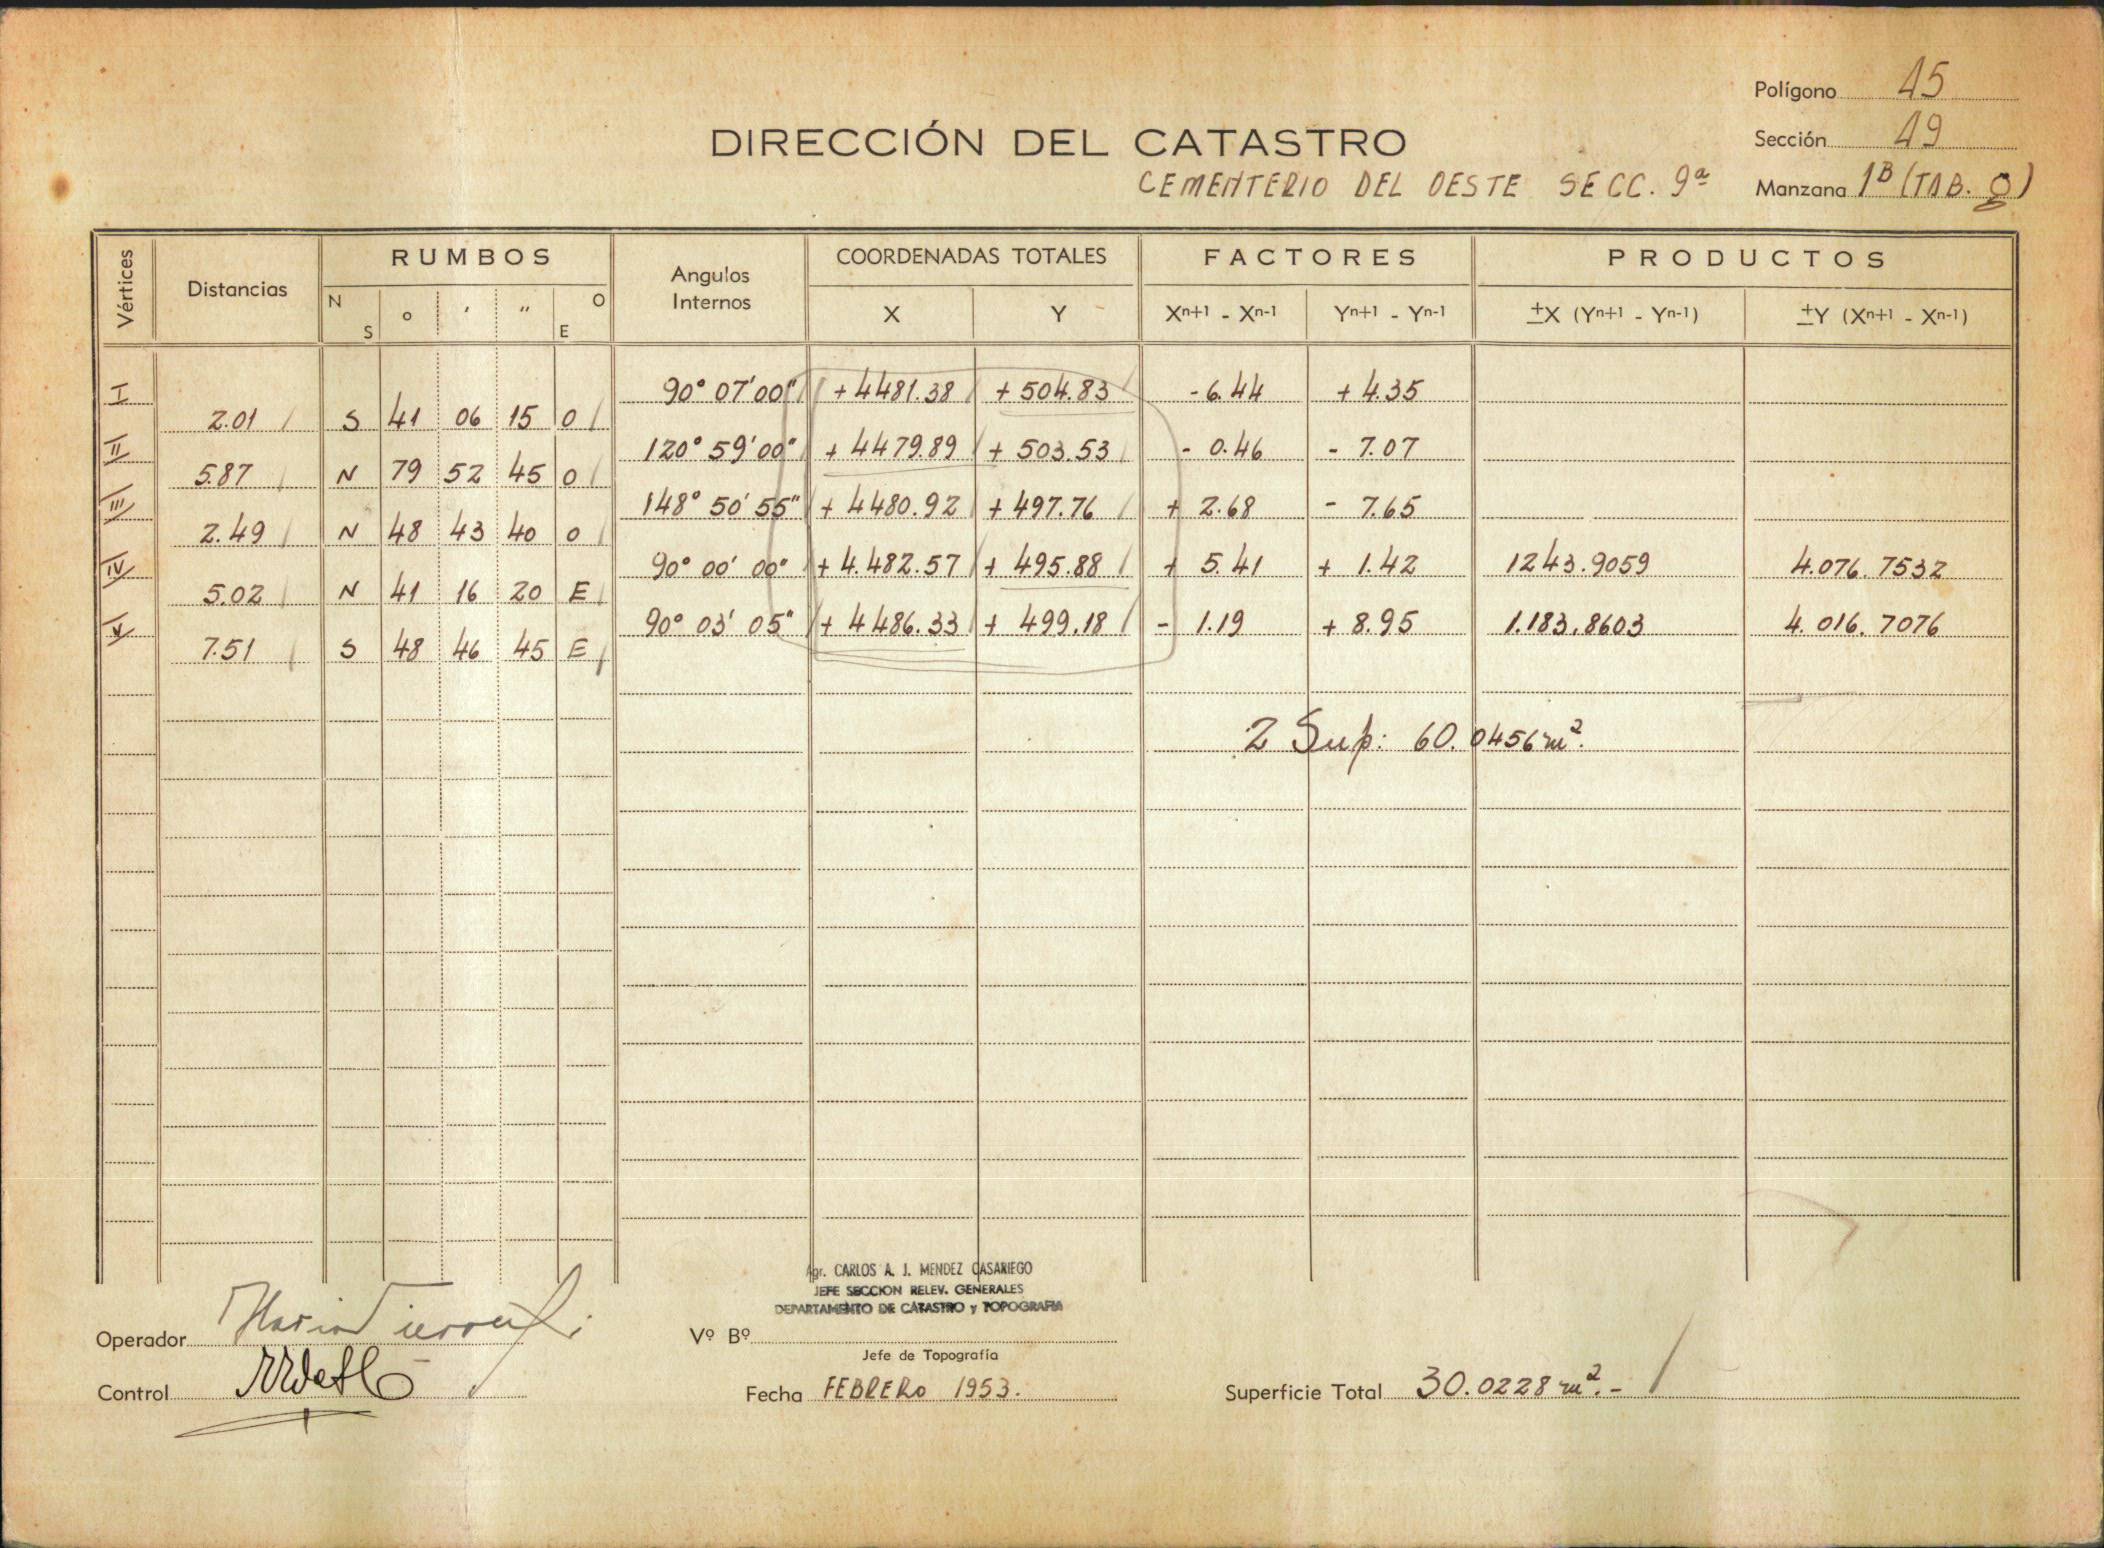 Polígono 45
DIRECCIÓN DEL CATASTRO
Sección 49
CEMENTERIO DEL OESTE SECC. 9ª
Manzana 1B (TAB. 8)
Vértices Distancias RUMBOS Angulos Internos COORDENADAS TOTALES FACTORES PRODUCTOS
N S o ' " O E X Y Xn+1 - Xn-1 Yn+1 - Yn-1 ±X (Yn+1 - Yn-1) ±Y (Xn+1 - Xn-1)
I 90° 07' 00" + 4481.38 + 504.83 - 6.44 + 4.35
2.01 S 41 06 15 O
II 120° 59' 00" + 4479.89 + 503.53 - 0.46 - 7.07
5.87 N 79 52 45 O
III 148° 50' 55" + 4480.92 + 497.76 + 2.68 - 7.65
2.49 N 48 43 40 O
IV 90° 00' 00" + 4.482.57 + 495.88 + 5.41 + 1.42 1243.9059 4.076.7532
5.02 N 41 16 20 E
V 90° 03' 05" + 4486.33 + 499.18 - 1.19 + 8.95 1.183.8603 4.016.7076
7.51 S 48 46 45 E
2 Sup: 60.0456 m².
Agr. CARLOS A. J. MENDEZ CASARIEGO
JEFE SECCION RELEV. GENERALES
DEPARTAMENTO DE CATASTRO y TOPOGRAFIA
Operador
Vº Bº
Jefe de Topografía
Control
Fecha FEBRERO 1953.
Superficie Total 30.0228 m².-